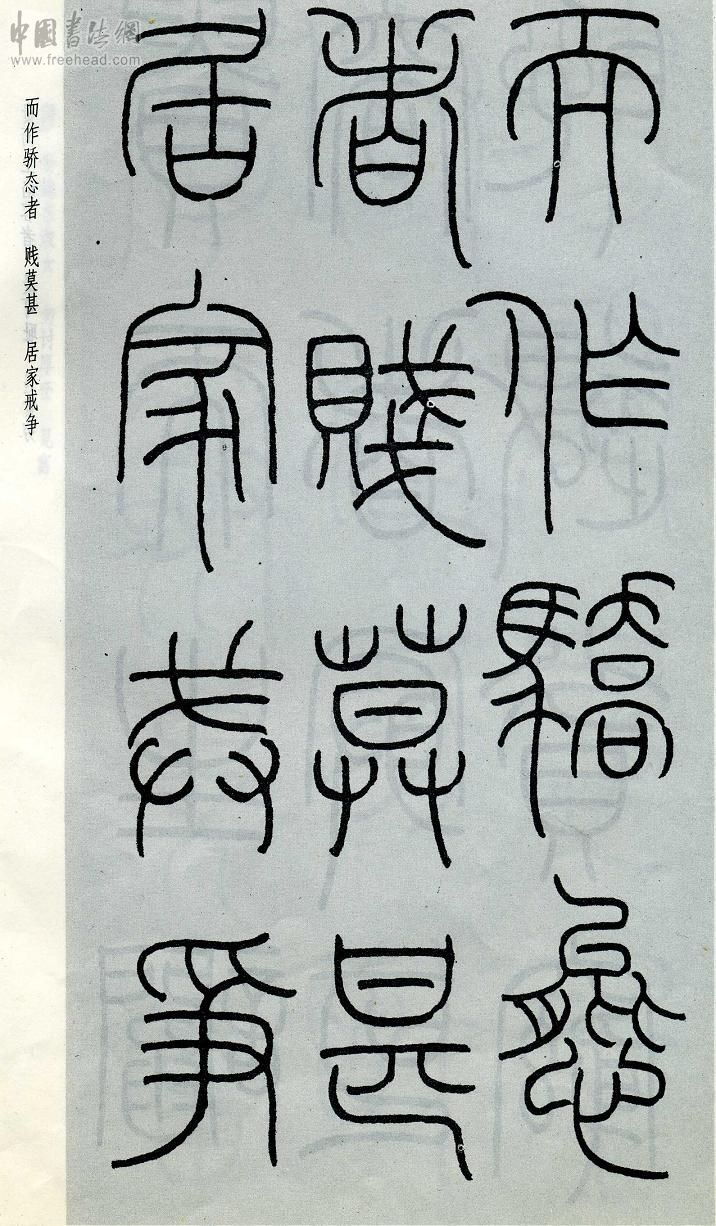 中國書法網
www.freehead.com
而作驕態
者賤莫甚
居家戒爭
而作骄态者 贱莫甚 居家戒争